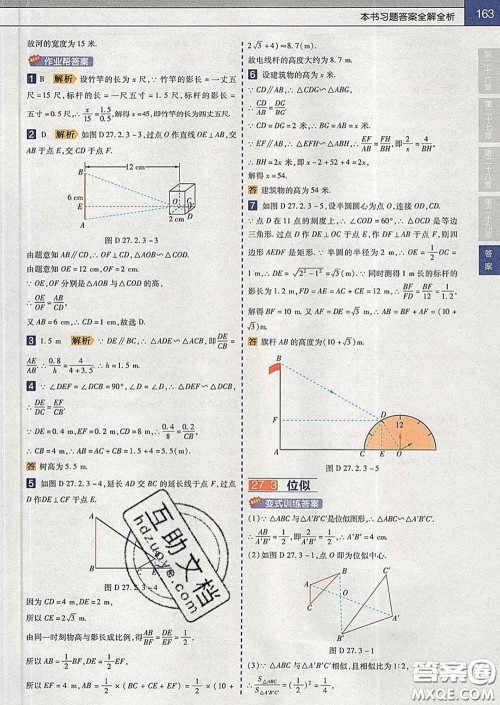 本书习题答案全解全析 163
故河的宽度为15米.
作业帮答案
1 B 解析 ∵设竹竿的长为x尺,∵竹竿的影长=一丈五
尺=15尺,标杆的长=一尺五寸=1.5尺,标杆的影长=
五寸=0.5尺,∴x/15=1.5/0.5,解得x=45,即竹竿的长为四丈五尺.
2 D 解析 如图D 27.2.3-3,过点O作直线OE⊥AB,交
AB于点E,交CD于点F.
12 cm
B
6 cm
E
A
O
C
F
D
2 cm
图 D 27.2.3-3
由题意知AB∥CD,∴△OAB∽△ODC,
由题意知OE=12 cm,OF=2 cm.
∵OE,OF分别是△OAB与△ODC的高,
∴OE/OF=AB/CD.
又AB=6 cm,∴CD=1 cm,故选D.
3 1.5 m 解析 ∵DE∥BC,∴△ADE∽△ACB,即
AE/AB=0.8/h=4/(4+3.5),∴h=1.5 m.
4 ∵∠DEF=∠DCB=90°,∠D=∠D,∴△DEF∽△DCB,
∴DE/DC=EF/CB.
∵DE=0.4 m,EF=0.2 m,CD=8 m,∴0.4/8=0.2/CB,
∴CB=4 m,∴AB=AC+BC=1.5+4=5.5(m).
答 树高为5.5 m.
5 如图D 27.2.3-4,延长AD交BC的延长线于点F,过点
D作DE⊥CF于点E.
A
D
B
图 D 27.2.3-4
因为CD=4 m,
所以DE=2 m,
所以CE=2√3 m.
由同一时刻物高与影长成比例,得AB/BF=DE/EF=1/2,
所以AB=1/2BF,DE=1/2EF,
所以EF=4 m,AB=1/2×(BC+CE+EF)=1/2×(10+
2√3+4)≈8.7(m).
故电线杆的高度大约为8.7 m.
6 设建筑物的高为x米.
∵CD∥AB,∴△CDG∽△ABG,
∴CD/AB=DG/BG,
∵CD∥AB,∴△EFH∽△ABH,∴EF/AB=FH/BH,
又CD=DG=EF=2 m,
∴BH=2x米,即x-2+52+4=2x,
解得x=54.
答 建筑物的高为54米.
7 如图D 27.2.3-5,设半圆圆心为点O,连接OD,CD.
∵点D在11点的刻度上,∴∠COD=60°,∴△COD是
等边三角形.过点D作DE⊥OC,DF⊥AB,垂足分别为
点E,F.∵∠A=∠DEA=∠AFD=90°,∴四
边形AEDF是矩形.∵半圆的半径为2米,∴OE=1/2OC=
1米,∴DE=√(2²-1²)=√3(米).∵同时测得1米长的标杆的
影长为1.2米,FD=AE=AC+CE=12米,∴BF/FD=BF/12=1/1.2,
解得BF=10米.又AF=DE=√3米,∴AB=BF+AF=(10+
√3)米.
答 旗杆AB的高度为(10+√3)米.
B
F
A
D
12
C
E
O
图 D 27.2.3-5
27.3 位似
变式训练答案
(1)∵△ABC与△A'B'C'是位似图形,∴△ABC∽△A'B'C',
∴AB/A'B'=AC/A'C'=1/2.∵AC=2 cm,∴2/A'C'=1/2,∴A'C'=4 cm.
(2)如图D 27.3-1,点P即为位似中心.
B
C'
A
P
C
A'
B'
图 D 27.3-1
(3)∵△ABC与△A'B'C'位似,且相似比为1:2,
∴S△ABC/S△A'B'C'=(1/2)²=1/4.
第二十六章
第二十七章
第二十八章
第二十九章
答案
互助文档
hdzuoye.com
答案圈
MXQE.COM